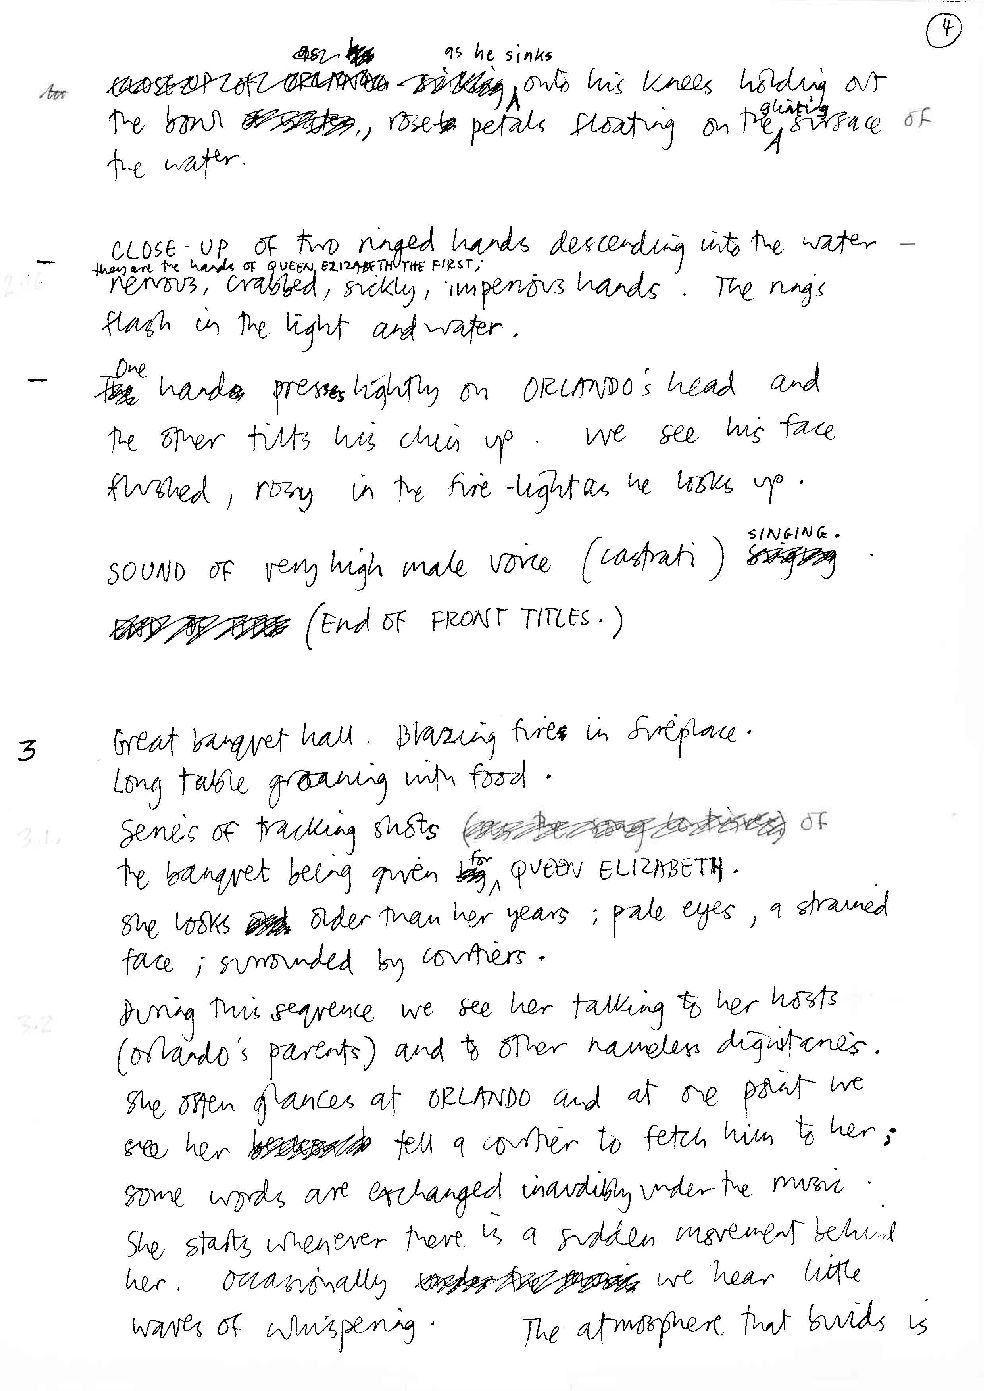 4
as he sinks
onto his knees holding out
the bowl, rose petals floating on the glinting surface of
the water.
CLOSE-UP of two ringed hands descending into the water —
they are the hands of QUEEN ELIZABETH THE FIRST;
nervous, crabbed, sickly, imperious hands. The rings
flash in the light and water.
One hand presses lightly on ORLANDO's head and
the other tilts his chin up. We see his face
flushed, rosy in the fire-light as he looks up.
SOUND OF very high male voice (castrati) SINGING.
(End OF FRONT TITLES.)
3
Great banquet hall. Blazing fire in fireplace.
Long table groaning with food.
3.1.
Series of tracking shots of
the banquet being given for QUEEN ELIZABETH.
She looks older than her years; pale eyes, a strained
face; surrounded by courtiers.
3.2
During this sequence we see her talking to her hosts
(Orlando's parents) and to other nameless dignitaries.
She often glances at ORLANDO and at one point we
see her tell a courtier to fetch him to her;
some words are exchanged inaudibly under the music.
She starts whenever there is a sudden movement behind
her. Occasionally we hear little
waves of whispering. The atmosphere that builds is